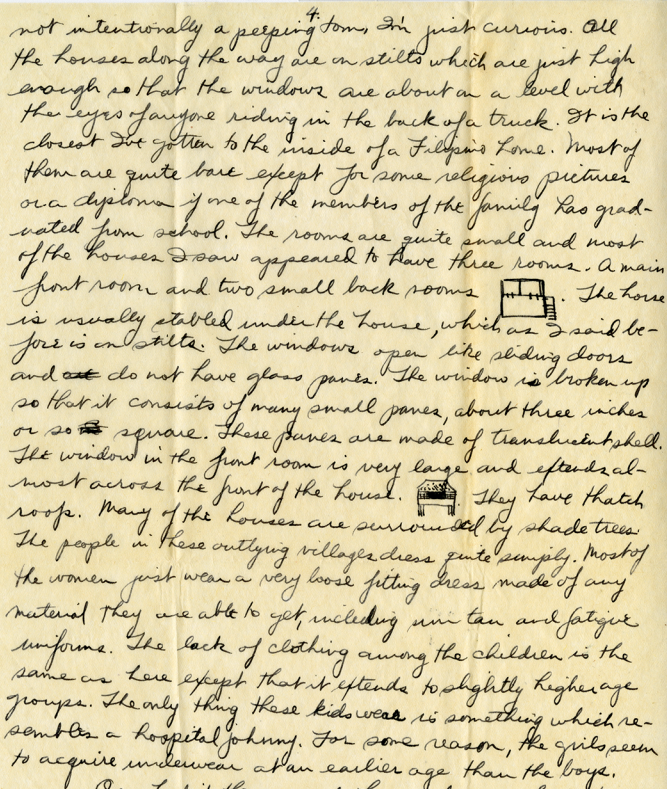 4.
not intentionally a peeping tom, I'm just curious. All
the houses along the way are on stilts which are just high
enough so that the windows are about on a level with
the eyes of anyone riding in the back of a truck. It is the
closest I've gotten to the inside of a Filipino home. Most of
them are quite bare except for some religious pictures
or a diploma if one of the members of the family has grad-
uated from school. The rooms are quite small and most
of the houses I saw appeared to have three rooms. A main
front room and two small back rooms . The horse
is usually stabled under the house, which as I said be-
fore is on stilts. The windows open like sliding doors
and do not have glass panes. The window is broken up
so that it consists of many small panes, about three inches
or so square. These panes are made of translucent shell.
The window in the front room is very large and extends al-
most across the front of the house. They have thatch
roofs. Many of the houses are surrounded by shade trees.
The people in these outlying villages dress quite simply. Most of
the women just wear a very loose fitting dress made of any
material they are able to get, including sun tan and fatigue
uniforms. The lack of clothing among the children is the
same as here except that it extends to slightly higher age
groups. The only thing these kids wear is something which re-
sembles a hospital johnny. For some reason, the girls seem
to acquire underwear at an earlier age than the boys.